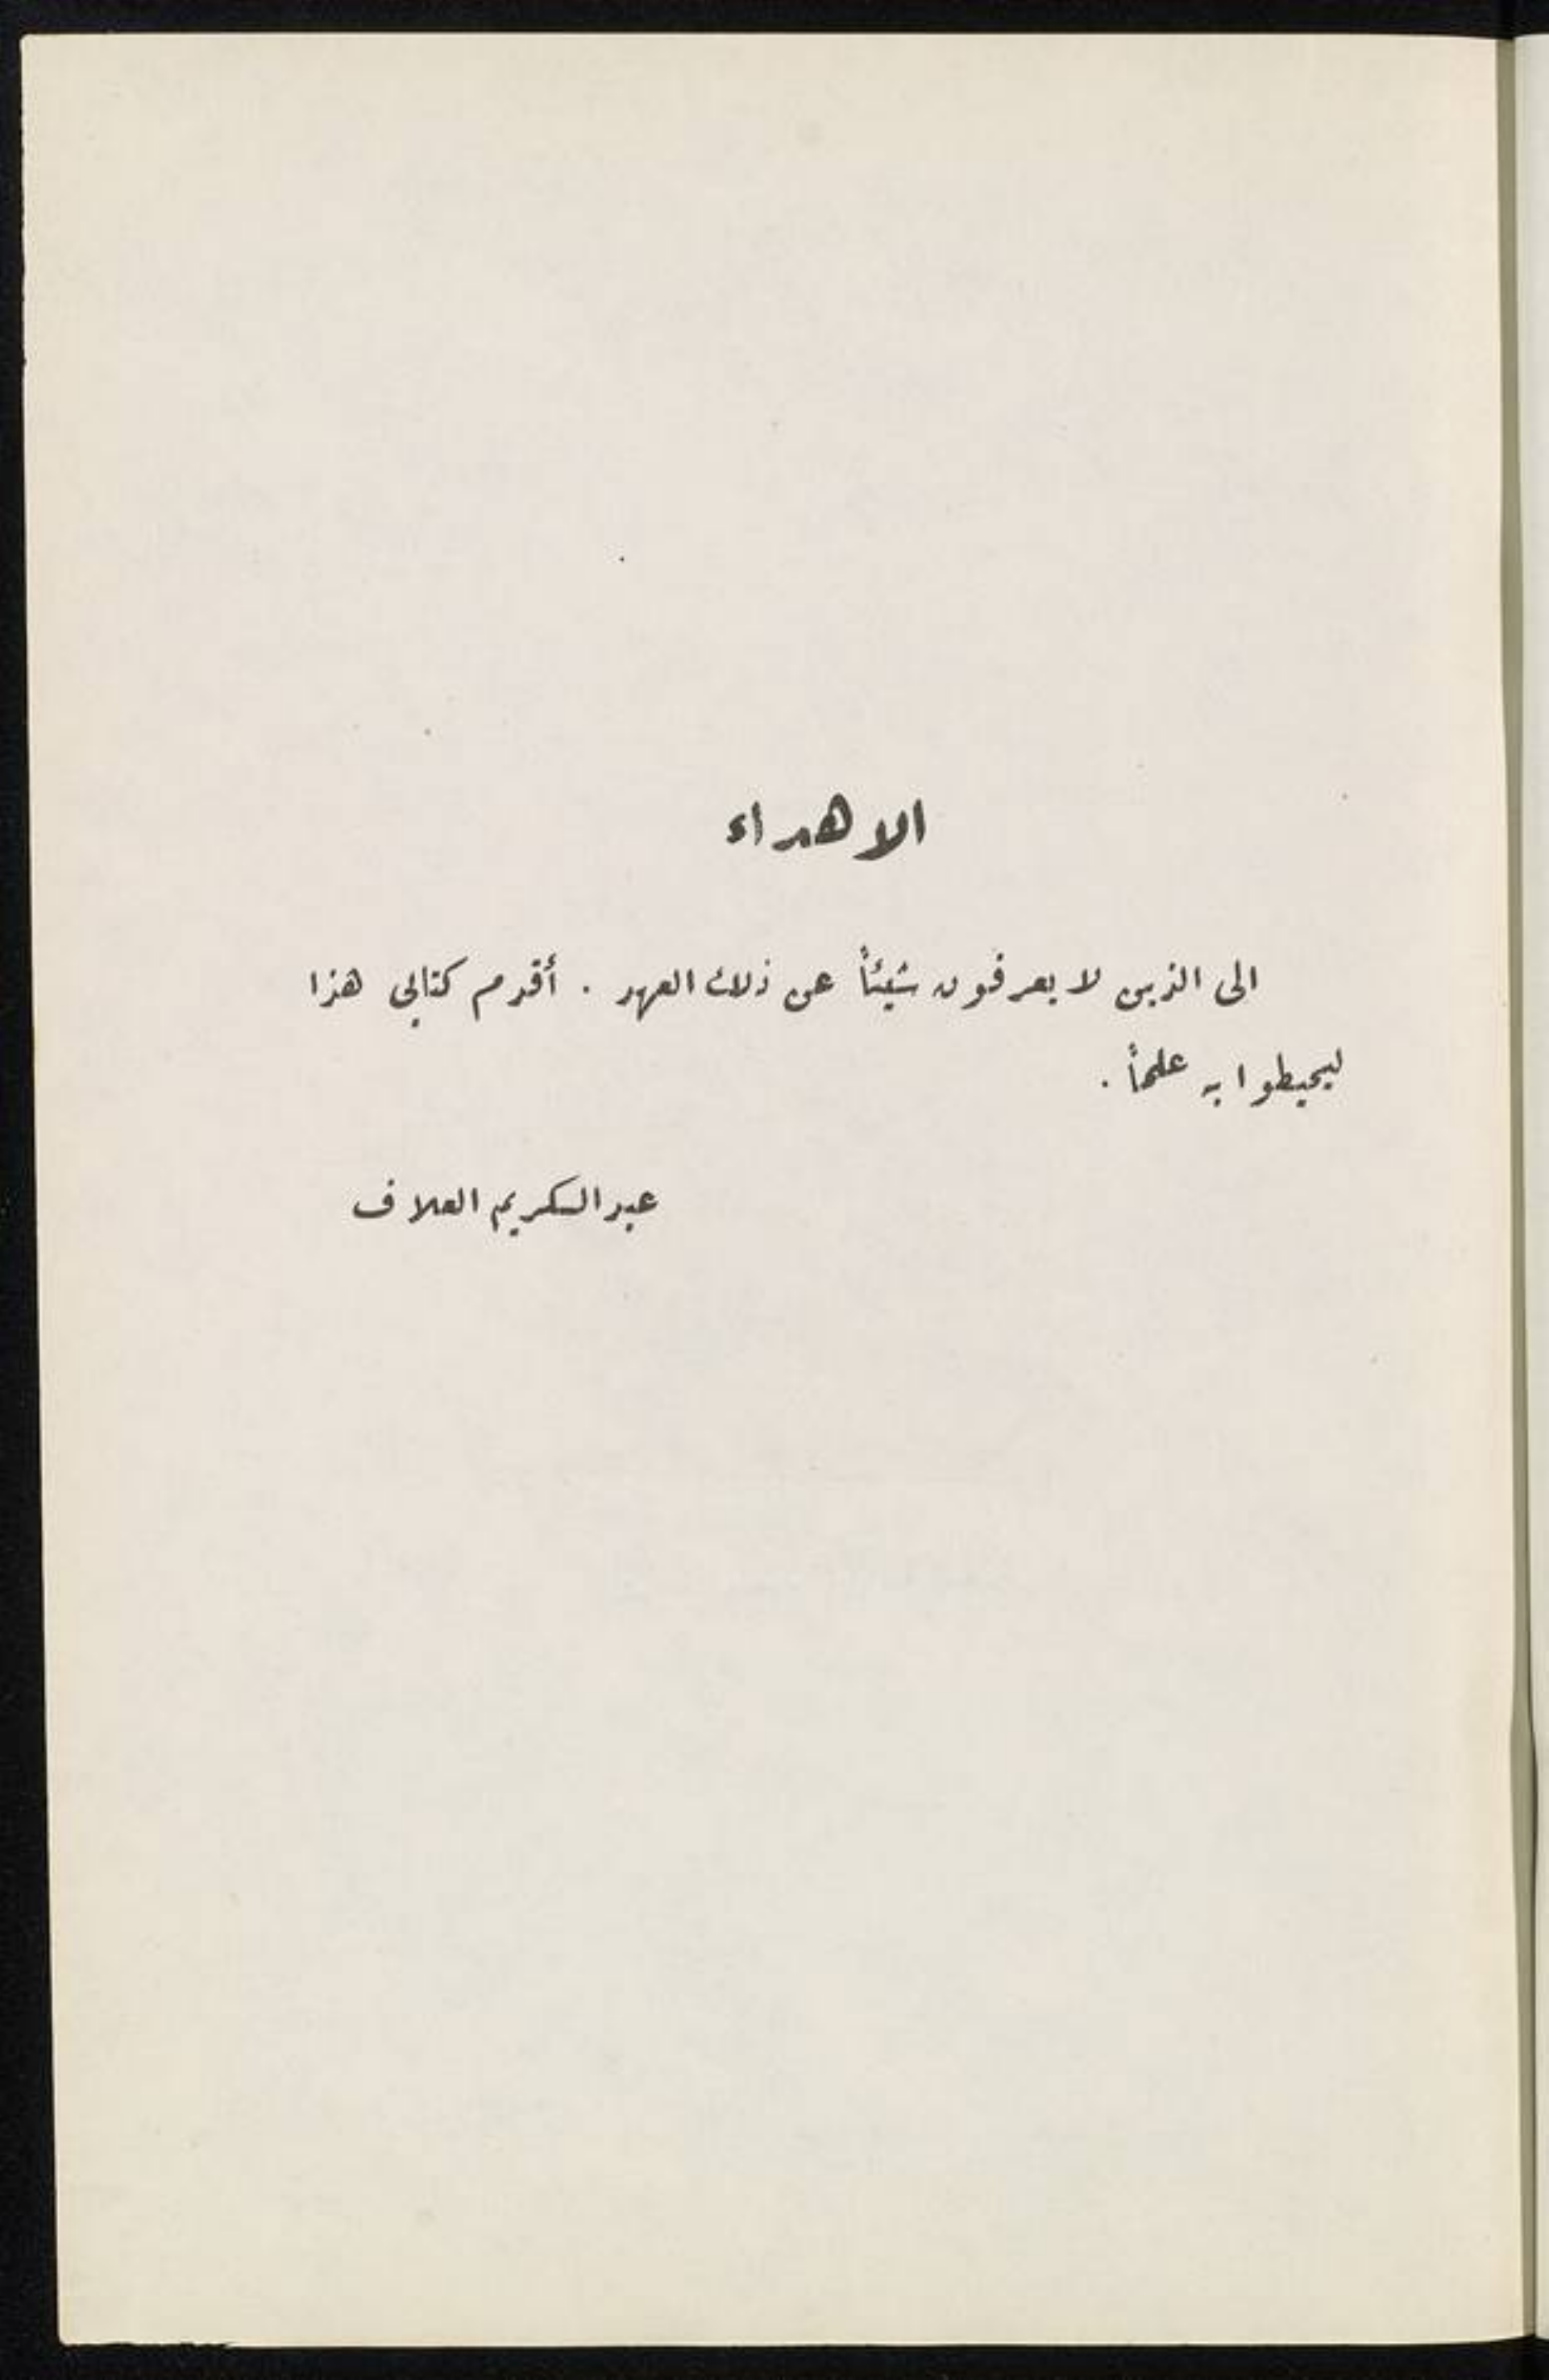 الاهداء
الى الذين لا يعرفون شيئاً عن ذلك العهد . أقدم كتابي هذا
ليحيطوا به علماً .
عبد الكريم العلاف